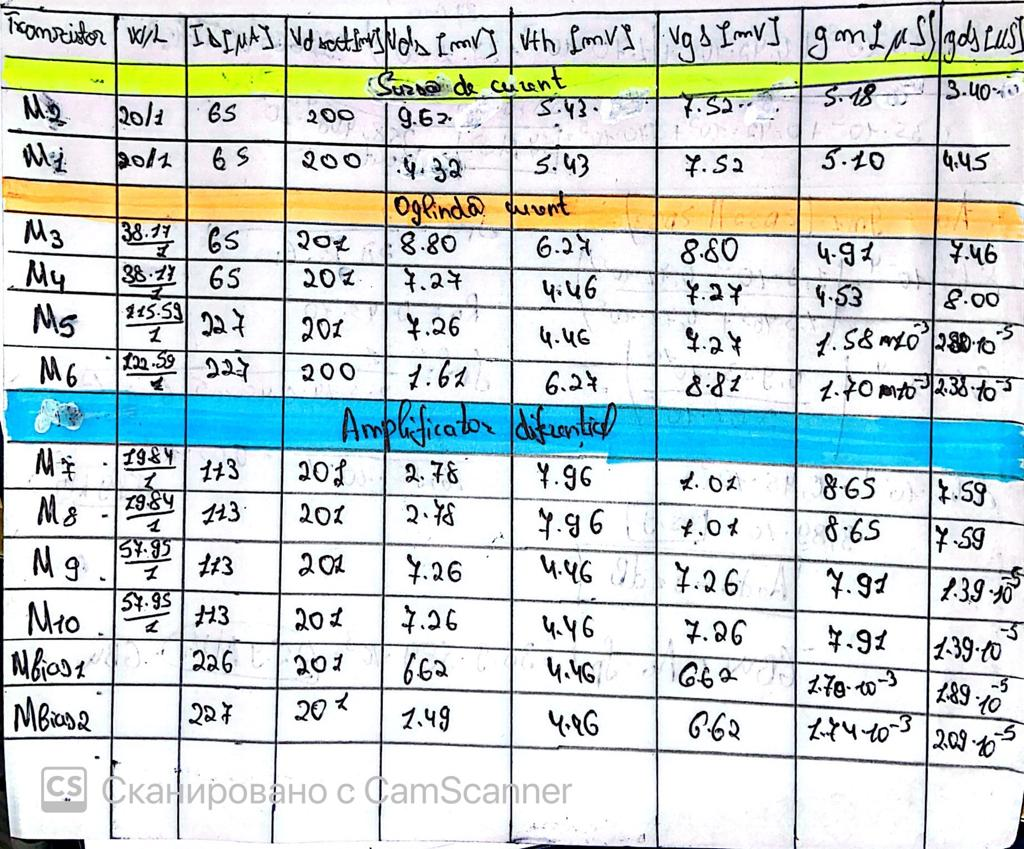 Tranzistor W/L ID[µA] Vdsat[mV] Vds [mV] Vth [mV] Vgs [mV] gm [µS] gds [µS]
Sursa de curent
M2 20/1 65 200 9.62 5.43 7.52 5.18 3.40
M1 20/1 65 200 4.32 5.43 7.52 5.10 4.45
Oglinda curent
M3 38.17/1 65 201 8.80 6.27 8.80 4.91 7.46
M4 38.17/1 65 201 7.27 4.46 7.27 4.53 8.00
M5 115.59/1 227 201 7.26 4.46 7.27 1.58 m10⁻³ ·10⁻⁵
M6 122.59/1 227 200 1.61 6.27 8.81 1.70 m10⁻³ 2.38·10⁻⁵
Amplificator diferential
M7 19.84/1 113 201 2.78 7.96 1.01 8.65 7.59
M8 19.84/1 113 201 2.78 7.96 1.01 8.65 7.59
M9 57.95/1 113 201 7.26 4.46 7.26 7.91 1.39·10⁻⁵
M10 57.95/1 113 201 7.26 4.46 7.26 7.91 1.39·10⁻⁵
Mbias1 226 201 662 4.46 6.62 1.79·10⁻³ 1.89·10⁻⁵
Mbias2 227 201 1.49 4.46 6.62 1.74·10⁻³ 2.09·10⁻⁵
CS Сканировано с CamScanner